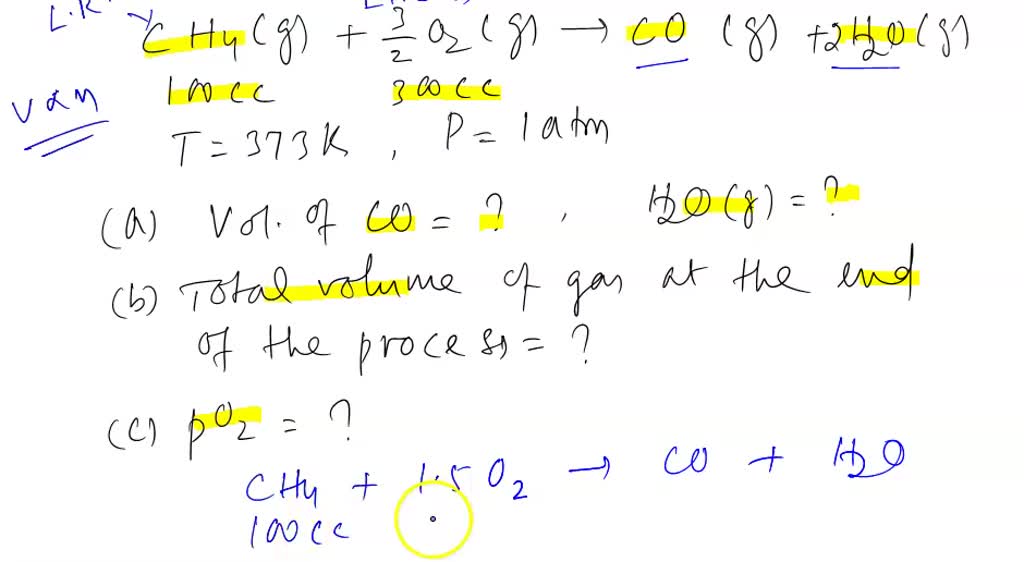 L.R.
CH4(g) + 3/2 O2(g) → CO (g) + 2H2O(g)
V α n 100cc 300cc
T = 373K , P = 1 atm
(a) Vol. of CO = ? , H2O(g) = ?
(b) Total volume of gas at the end
of the process = ?
(c) pO2 = ?
CH4 + 1.5 O2 → CO + H2O
100cc